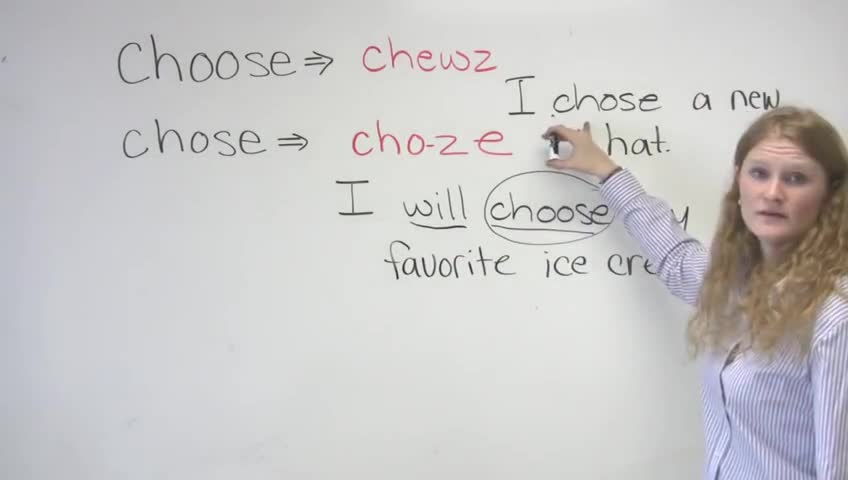 Choose ⇒ chewz
chose ⇒ cho-ze
I chose a new
hat.
I will choose
favorite ice